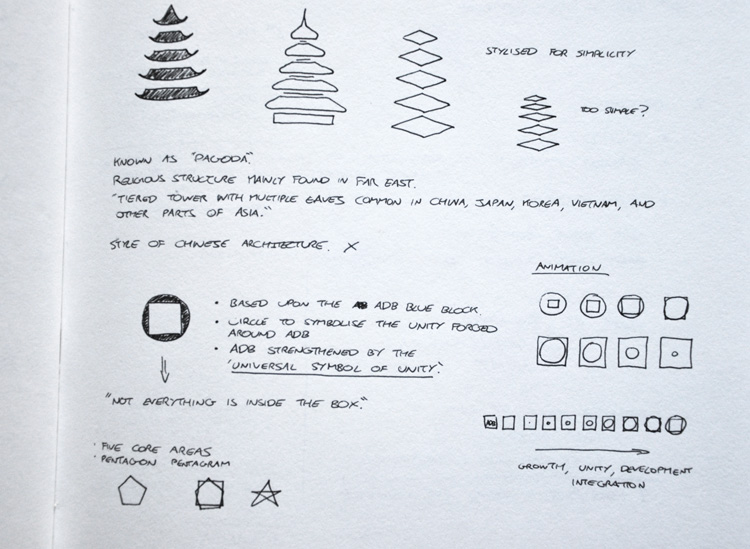 STYLISED FOR SIMPLICITY
TOO SIMPLE?
KNOWN AS "PAGODA".
RELIGIOUS STRUCTURE MAINLY FOUND IN FAR EAST.
"TIERED TOWER WITH MULTIPLE EAVES COMMON IN CHINA, JAPAN, KOREA, VIETNAM, AND
OTHER PARTS OF ASIA."
STYLE OF CHINESE ARCHITECTURE. X
• BASED UPON THE ADB BLUE BLOCK.
• CIRCLE TO SYMBOLISE THE UNITY FORGED
AROUND ADB
• ADB STRENGTHENED BY THE
"UNIVERSAL SYMBOL OF UNITY".
"NOT EVERYTHING IS INSIDE THE BOX."
• FIVE CORE AREAS
• PENTAGON PENTAGRAM
ANIMATION
ADB
GROWTH, UNITY, DEVELOPMENT
INTEGRATION